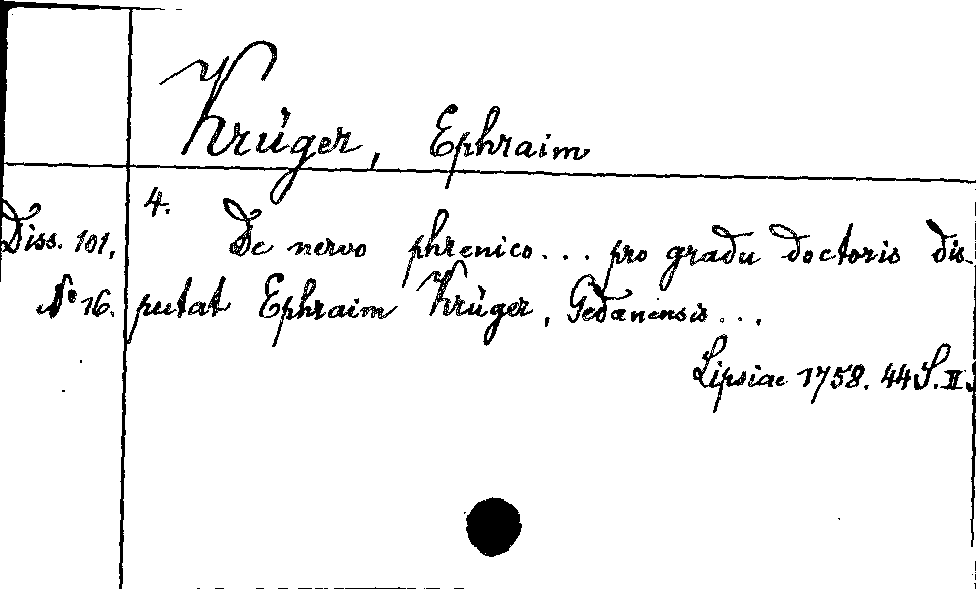 Krüger, Ephraim
4.
Diss. 101, De nervo phrenico... pro gradu doctoris dis-
No 16. putat Ephraim Krüger, Gedanensis...
Lipsiae 1758. 44 S. II.